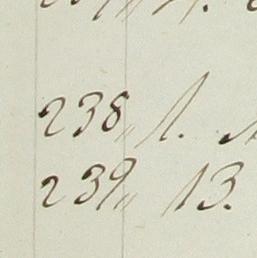 238„ 1.
239„ 13.